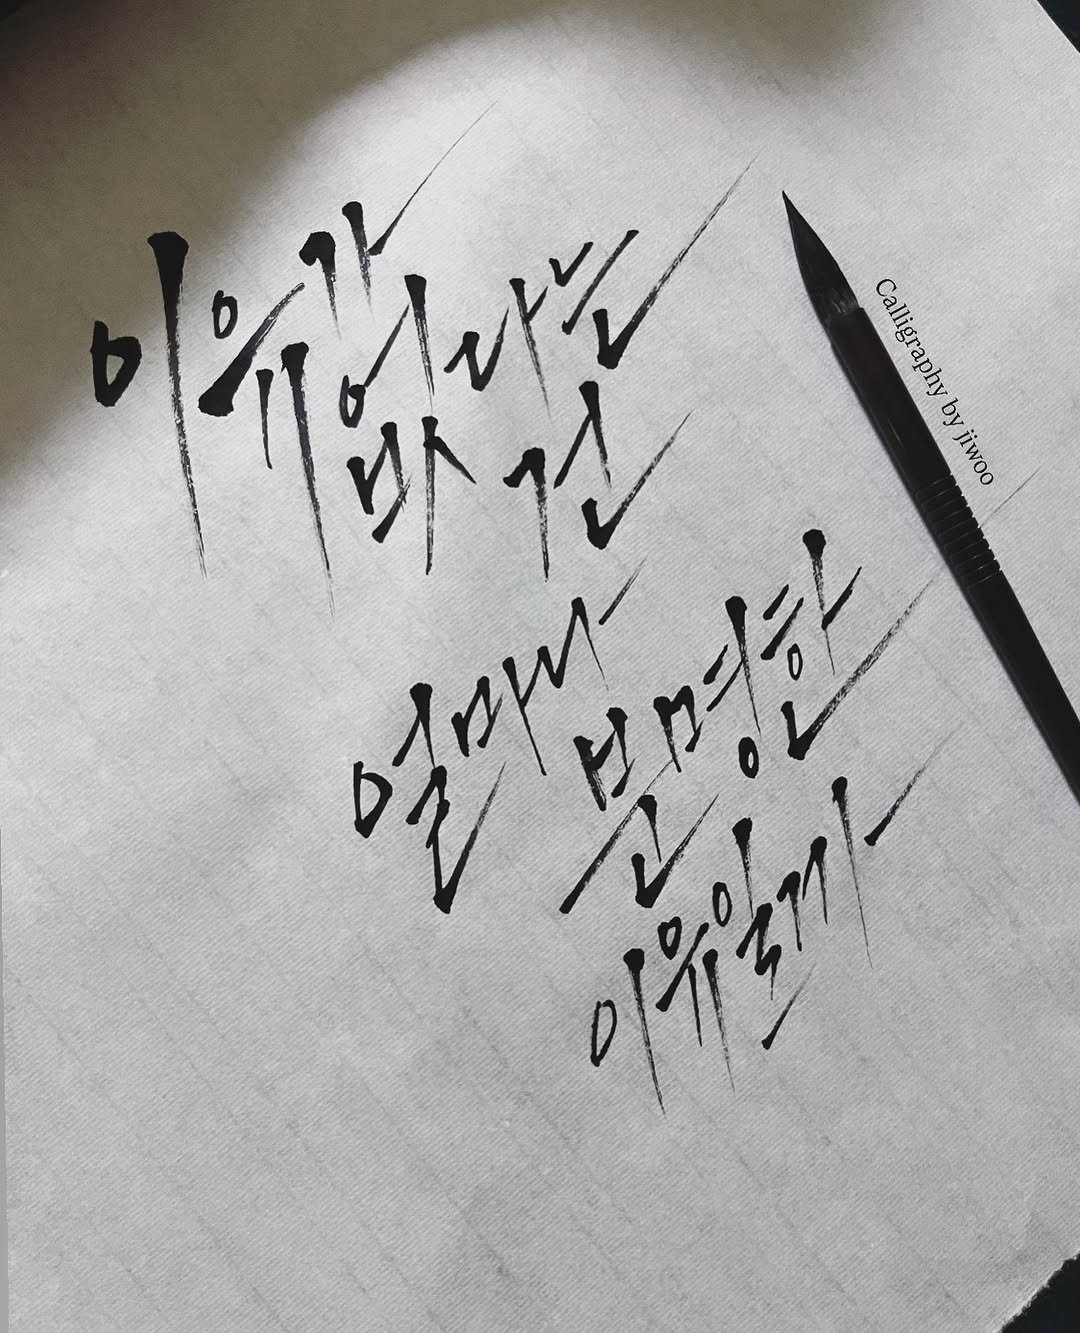 이유가
없다는 건
얼마나
분명한
이유일까
Calligraphy by jiwoo